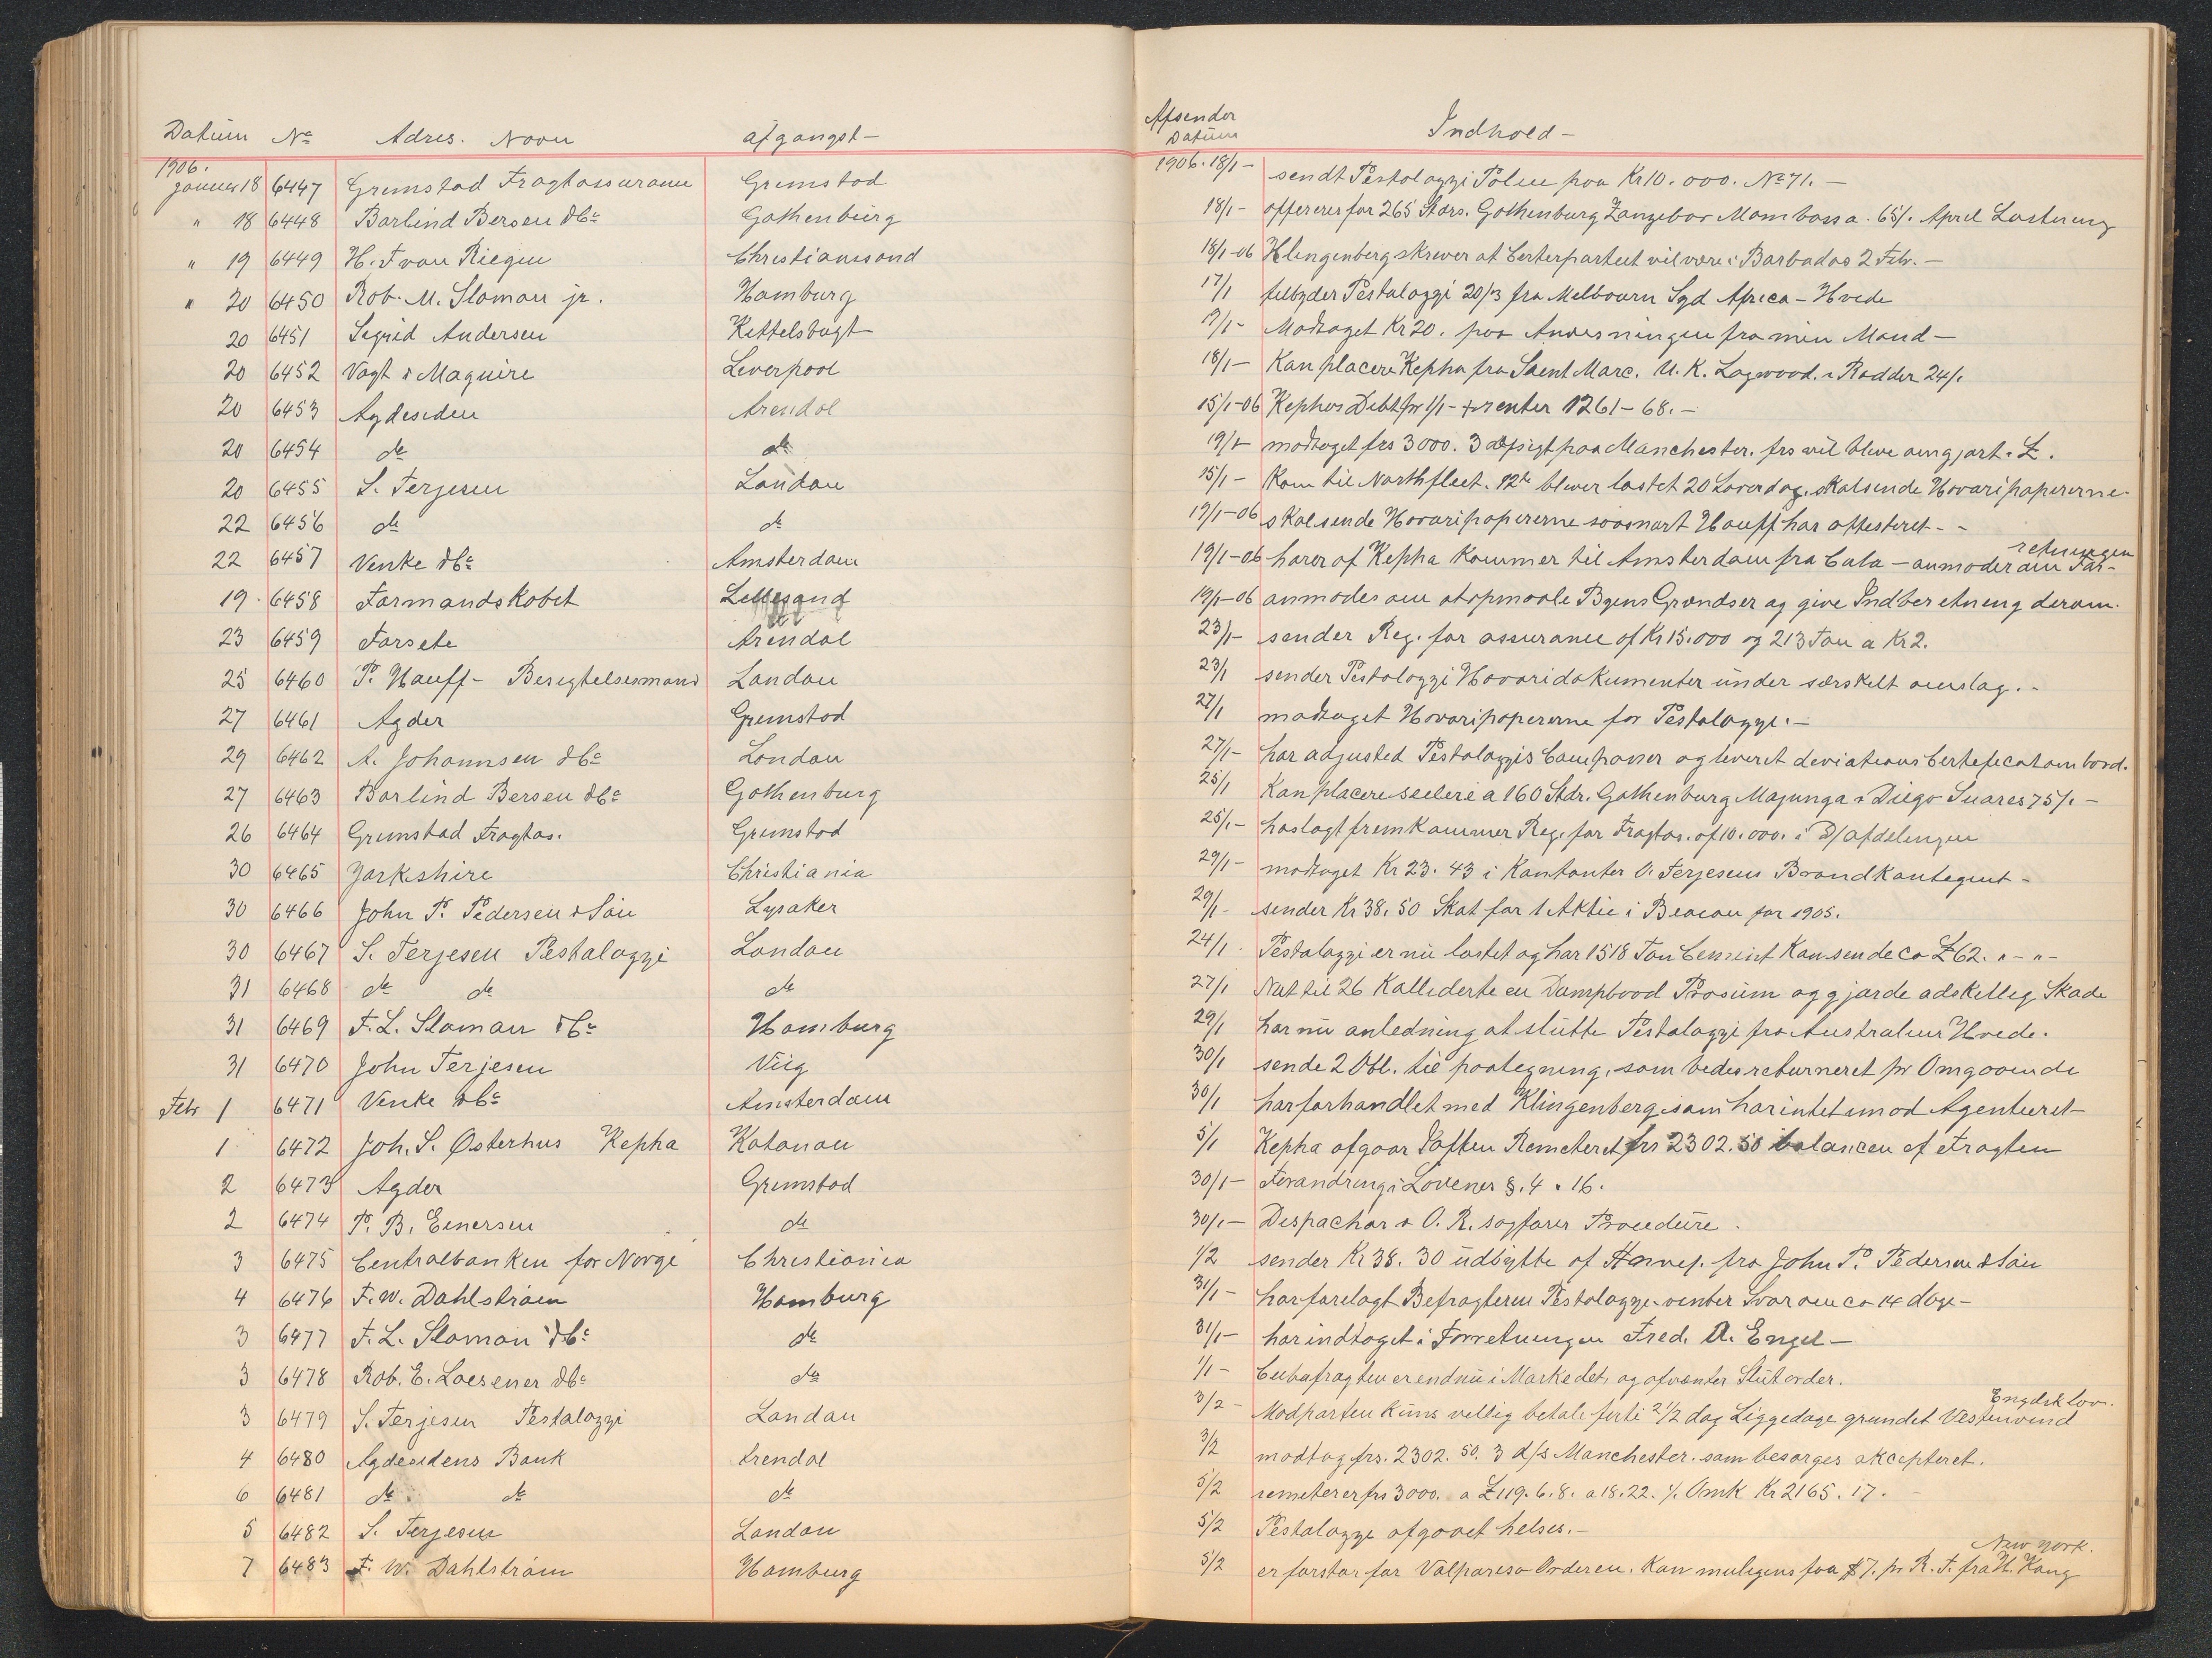 Datum No Adres. Navn afgangst- Afsender Datum Indhold-
1906. Januar 18 6447 Grimstad Fragtassurance Grimstad 1906. 18/1- sendt Pestalozzi Police paa Kr 10.000. No 71.-
" 18 6448 Barlind Bersen & Co Gothenburg 18/1- offererer for 265 Stdrs. Gothenburg Zanzebar Mombassa. 65/. April Lastning
" 19 6449 H. F van Riegen Christianssand 18/1-06 Klingenberg skriver at Certerpartiet vil være i Barbados 2 Febr.-
" 20 6450 Rob. M. Sloman jr. Hamburg 17/1 tilbyder Pestalozzi 20/3 fra Melbourn Syd Africa - Hvede
20 6451 Sigrid Andersen Kittelsbugt 19/1- Modtaget Kr 20. paa Anvisningen fra min Mand-
20 6452 Vogt & Maguire Liverpool 18/1- Kan placere Kepha fra Saint Marc. U. K. Logwood. & Rødder 24/.
20 6453 Agdesiden Arendal 15/1-06 Kephas Debt pr 1/1- + renter 1261-68.-
20 6454 do do 19/1 modtaget frs 3000. 3 d/sigt paa Manchester. frs vil blive omgjort i £.
20 6455 S. Terjesen London 15/1- Kom til Northfleet. 12te bliver lastet 20 Løverdag. skal sende Havaripapirerne.
22 6456 do do 19/1-06 skal sende Havaripapirerne saasnart Hauff har attesteret.-
22 6457 Venke & Co Amsterdam 19/1-06 hører af Kepha kommer til Amsterdam fra Cuba - anmoder om For-retningen
19. 6458 Formandskabet Lillesand 19/1-06 anmodes om at opmaale Byens Grændser og give Indberetning derom.
23 6459 Forsete Arendal 23/1- sender Reg. for assurance af Kr 15.000 og 213 Ton a Kr 2.
25 6460 P. Hauff- Besigtelsesmand London 23/1 sender Pestalozzi Havaridokumenter under særskilt omslag.-
27 6461 Agder Grimstad 27/1 modtaget Havaripapirerne for Pestalozzi.-
29 6462 A. Johannsen & Co London 27/1- har adjusted Pestalozzis Compasser og leveret deviations Certeficat ombord.
27 6463 Barlind Bersen & Co Gothenburg 25/1 Kan placere seilere a 160 Stdr. Gothenburg Majunga & Diego Suares 75/.-
26 6464 Grimstad Fragtas. Grimstad 25/1- hoslagt fremkommer Reg. for Fragtas. af 10.000. i D/ afdelingen
30 6465 Yorkshire Christiania 29/1- modtaget Kr 23.43 i Kontanter O. Terjesens Brandkontegent-
30 6466 John P. Pedersen & Søn Lysaker 29/1- sender Kr 38.50 Skat for 1 Aktie i Beacon for 1905.
30 6467 S. Terjesen Pestalozzi London 24/1- Pestalozzi er nu lastet og har 1518 Ton Cement Kan sende ca £62. "-"-
31 6468 do do do 27/1 Nat til 26 Kalliderte en Dampbaad Prosum og gjorde adskillig Skade
31 6469 F. L. Sloman & Co Hamburg 29/1 har nu anledning at slutte Pestalozzi fra Australien Hvede.
31 6470 John Terjesen Viig 30/1 sende 2 Obl. til paategning, som bedes returneret pr Omgaaende
Febr 1 6471 Venke & Co Amsterdam 30/1 har forhandlet med Klingenberg som har intet imod Agenturet-
1 6472 Joh. S. Østerhus Kepha Kotonou 5/1 Kepha afgaar Iaften Remitteret frs 2302.50 balancen af Fragten
2 6473 Agder Grimstad 30/1- Forandring i Lovenes §. 4 & 16.
2 6474 P. B. Einersen do 30/1- Despachør & O. R. sagfører Procedure.
3 6475 Centralbanken for Norge Christiania 1/2 sender Kr 38.30 udbytte af fra John P. Pedersen & Søn
4 6476 F. W. Dahlstrøm Hamburg 31/1- har forelagt Befragteren Pestalozzi - venter Svar om ca 14 dage-
3 6477 F. L. Sloman & Co do 31/1- har indtaget i Forretningen Fred. A. Engel-
3 6478 Rob. E. Loesener & Co do 1/1- Cubafragten er endnu i Markedet, og afventer Slutorder.
3 6479 S. Terjesen Pestalozzi London 3/2- Modparten kuns villig betale forti 2 1/2 dag Liggedage grundet Vestenvind Engelsk lov.
4 6480 Agdesidens Bank Arendal 3/2 modtog frs. 2302.50. 3 d/s Manchester. som besørges akcepteret.
6 6481 do do do 5/2 remeterer frs 3000. a £119.6.8. a 18.22. ./. Omk Kr 2165.17.
5 6482 S. Terjesen London 5/2 Pestalozzi afgaaet helses.-
7 6483 F. W. Dahlstrøm Hamburg 5/2 er forstar for Valpareso Orderen. Kan muligens faa $7. pr R. T. fra New York. H. Kong